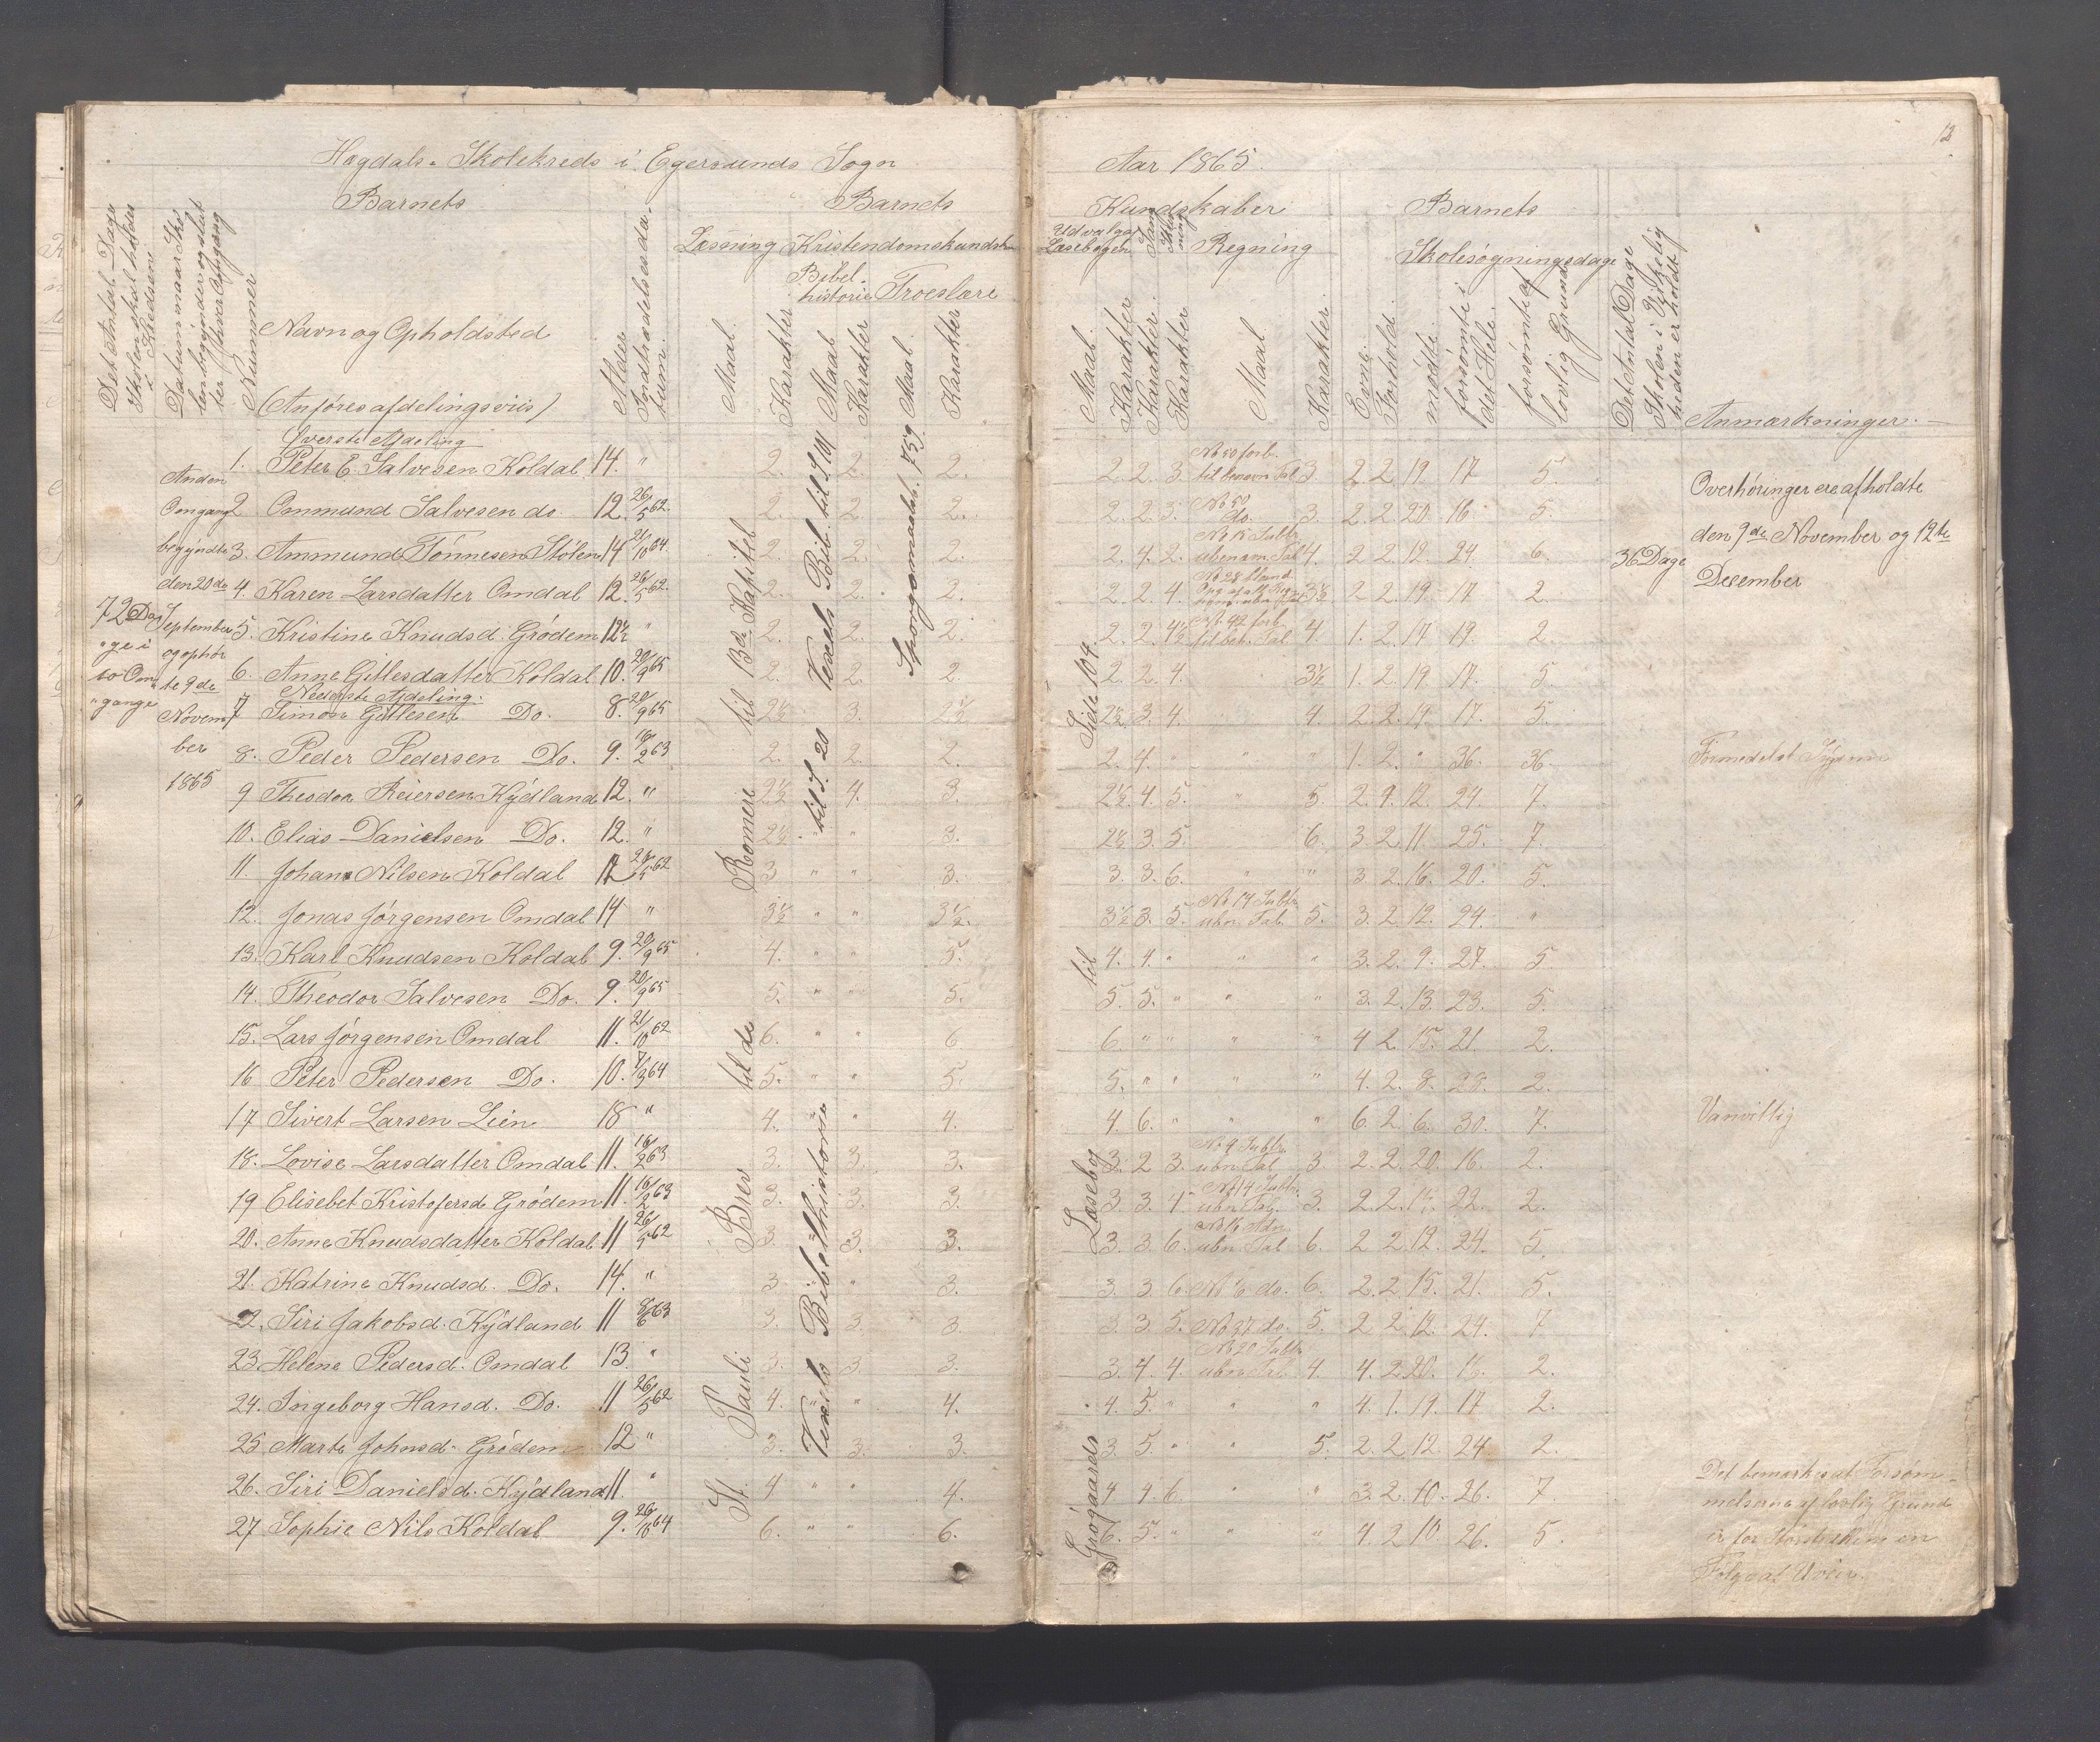 Høgdals Skolekreds i Egersunds Sogn
Aar 1865.
Barnets
Barnets
Kundskaber
Barnets
Det Antal Dage Skolen skal holdes i Kredsene
Datum naar Skolen begynder og slutter hver Omgang
Nummer
Navn og Opholdsted
(Anføres afdelingsviis)
Alder
Indtrædelsesdatum.
Læsning
Kristendomskundskab
Bibelhistorie
Troeslære
Maal.
Karakter
Maal.
Karakter
Maal.
Karakter
Udvalg af Læsebogen
Sang
Skrivning
Regning
Skolesøgningsdage
Maal.
Karakter
Karakter.
Karakter
Maal
Karakter.
Evne.
Forhold.
mødte.
forsømte i det Hele.
forsømte af lovlig Grund
Det Antal Dage Skolen i Virkeligheden er holdt
Anmærkninger.
72 Dage i to Omgange
Anden Omgang begyndte den 20de September og ophørte 9de November 1865
Øverste Afdeling
1. Peter E. Salvesen Koldal 14. " 2. 2. 2. 2. 2. 3. No 50 forb. til benævn Tal 3. 2 2 19 17 5.
2 Ommund Salvesen do. 12. 26/5 62. 2. 2. 2. 2. 2. 3. No 50 do. 3. 2. 2. 20. 16. 5.
3. Ammund Tönnesen Stölen 14 21/10 64 2. 2. 2. 2. 4. 2. ubenævn Tal 4. 2 2 12. 24. 6.
4. Karen Larsdatter Omdal 12. 26/5 62. 2. 2. 2. 2. 2. 4. 3½ 2 2 19 17 2.
5. Kristine Knudsd. Grödem 12½ " 2. 2. 2. 2. 2. 4½ 4. 1. 2. 17 19. 2.
6. Anne Gitlesdatter Koldal 10. 20/9 65 2. 2. 2. 2. 2. 4. 3½ 1. 2. 19 17. 5.
Nederste Afdeling.
7 Simon Gitlesen Do. 8. 20/9 65 2½ 3. 2½. 2½. 3. 4. 4. 2. 2. 19. 17. 5.
8. Peder Pedersen Do. 9. 16/2 63 2. 2. 2. 2. 4. " " " 1. 2. " 36. 36.
9 Theodor Reiersen Kýdland 12. " 2½ 4. 3. 2½. 4. 5. " 5. 2. 2. 12. 24. 7.
10. Elias Danielsen Do. 12. " 2½ " " 3. 2½ 3. 5. 6. 3. 2. 11. 25. 7.
11. Johan Nilsen Koldal 12 26/5 62 3 " " 3. 3. 3. 6. " " 3. 2. 16. 20. 5.
12. Jonas Jörgensen Omdal 14 " 3½ " " 3½. 3½ 3. 5. No 14 Subtr. ubn. Tal. 5. 3. 2. 12. 24. "
13. Karl Knudsen Koldal 9. 20/9 65 4. " " 5. 4. 4. " " " 3. 2. 9. 27. 5.
14. Theodor Salvesen Do. 9. 20/9 65 5. " " 5. 5. 5. " " " 3. 2. 13. 23. 5.
15. Lars Jörgensen Omdal 11. 21/10 62. 6. " " 6 6. " " " " 4 2. 15. 21. 2.
16 Peter Pedersen Do. 10. 64 5. " " 5. 5. " " " " 4. 2. 8. 28. 2.
17 Sivert Larsen Lien 18 " 4. " " 4. 4. 6. " " " 6. 2. 6. 30. 7.
18. Lovise Larsdatter Omdal 11. 16/2 63 3. 3. 3. 3. 2 3. No 9 Subtr. ubn Tal 3. 2. 2. 20. 16. 2.
19 Elisebet Kristofersd. Grödem 11. 16/2 63 3. 3. 3. 3. 3. 4. No 14 Subtr. ubn Tal. 3. 2. 2. 22. 2.
20. Anne Knudsdatter Koldal 11 26/5 62 3. 3. 3. 3. 3. 6. ubn Tal 6. 2 2. 12. 24. 5.
21. Katrine Knudsd. Do. 14. " 3. " 3. 3. 3. 6. No 6 do. 6. 2. 2. 15. 21. 5.
22. Siri Jakobsd. Kýdland 11 8/6 63 3. 3. 3. 3. 3. 5. No 37 do. 5. 2 2. 12. 24. 7
23. Helene Pedersd. Omdal 13. " 3. 3. 3. 3. 4. 4. No 20 Subtr. ubn Tal. 4. 4. 2. 20. 16. 2.
24. Ingeborg Hansd. Do. 11 26/5 62 4. " 4. 4. 5. " " " 4. 1. 19. 17 2.
25 Marte Johnsd. Grödem 12 " 3. 3. 3. 3. 5. " " 5. 2. 2. 12. 24 2.
26. Siri Danielsd. Kýdland 11. " 4 " " 4. 4 4. 6. " " 3. 2. 10. 26. 7.
27 Sophie Nils Koldal 9. 26/10 64 6. " " 6. 6. 5. " " " 4. 2 10 26. 5.
St. Pauli Brev til de Romere til 13de Kapitel
Vexels Bibelhistorie til S. 20
Vexels Bib. til S. 101
Sporgsmaalet. 759
Grøgaards Læsebog til Side 104.
36 Dage
Overhøringer ere afholdte
den 9de November og 12te
December
Formedelst Sygdom
Vanvittig
Det bemærkes at Forsøm-
melserne af lovlig Grund
er for Størstedelen en
Følge af Uveir.
12